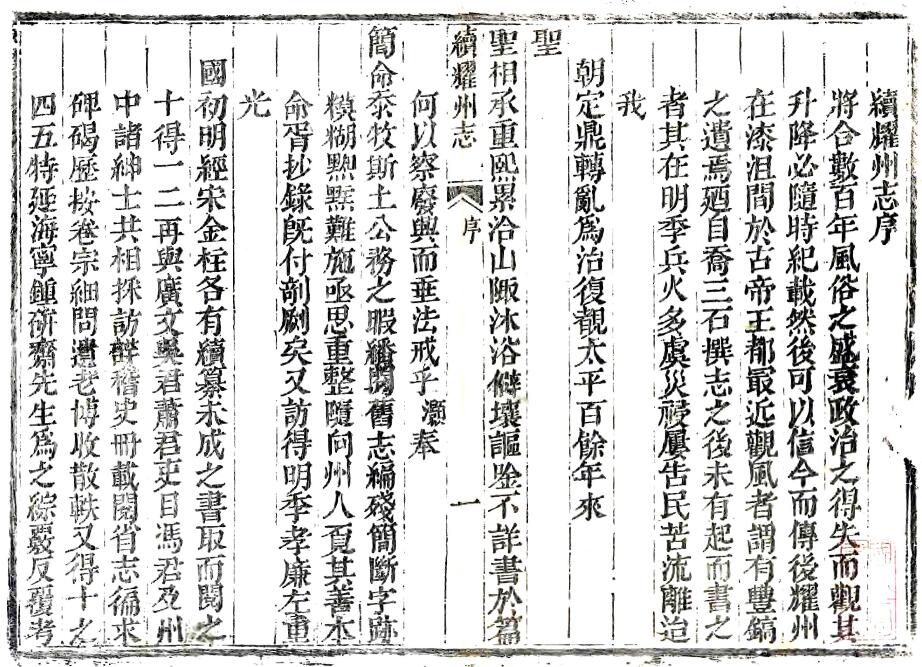 續耀州志序
將合數百年風俗之盛衰政治之得失而觀其
升降必隨時紀載然後可以信今而傳後耀州
在漆沮間於古帝王都最近觀風者謂有豐鎬
之遺焉廼自喬三石撰志之後未有起而書之
者其在明季兵火多虞災祲屢告民苦流離迨
我
朝定鼎轉亂爲治復觀太平百餘年來
聖
聖相承重熙累洽山陬沐浴僻壤謳唫不詳書於篇
續耀州志 序 一
何以察廢興而垂法戒乎灝奉
簡命忝牧斯土公務之暇繙閱舊志編殘簡斷字跡
糢糊㸃㸃難施亟思重整隨向州人覓其善本
命胥抄錄旣付剞劂矣又訪得明季孝廉左重
光
國初明經宋金柱各有續纂未成之書取而閱之
十得一二再與廣文吳君蕭君吏目馮君及州
中諸紳士共相採訪鮮稽史冊載閱省志徧求
碑碣歷按卷宗細問遺老博收散軼又得十之
四五特延海寧鍾硏齋先生爲之綜覈反覆考